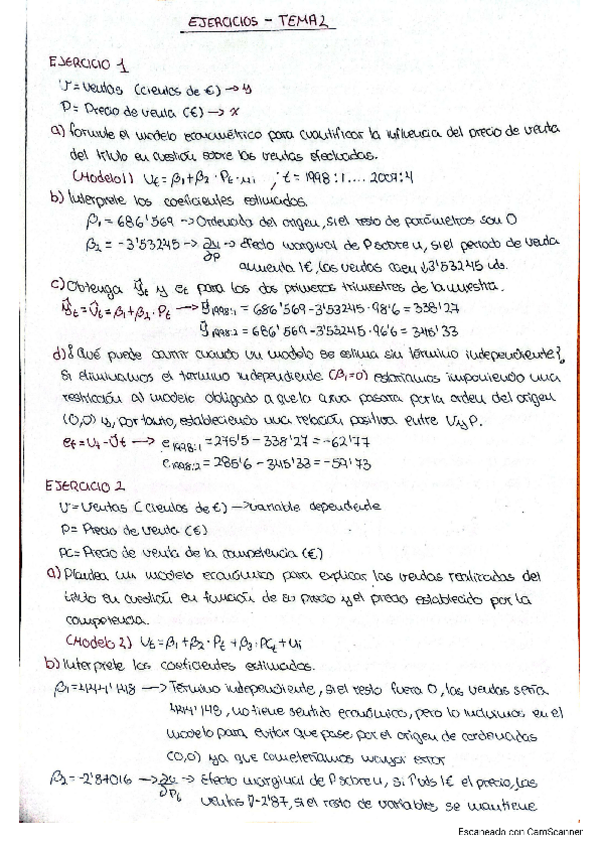 EJERCICIOS - TEMA 2
EJERCICIO 1
V = Ventas (cientos de €) → y
P = Precio de venta (€) → x
a) formule el modelo econométrico para cuantificar la influencia del precio de venta
del título en cuestión sobre las ventas efectuadas.
(Modelo 1) Vt = β1 + β2 · Pt + ui ; t = 1998:1.... 2009:4
b) Interprete los coeficientes estimados.
β1 = 686'569 → Ordenada del origen, si el resto de parámetros son 0
β2 = -3'53245 → ∂u/∂P → Efecto marginal de P sobre u, si el periodo de venta
aumenta 1€, las ventas caen ↓3'53245 uds.
c) Obtenga ŷt y et para los dos primeros trimestres de la muestra.
ŷt = v̂t = β1 + β2 · Pt → ŷ1998:1 = 686'569 - 3'53245 · 98'6 = 338'27
ŷ1998:2 = 686'569 - 3'53245 · 96'6 = 345'33
d) ¿Qué puede ocurrir cuando un modelo se estima sin término independiente?
Si eliminamos el termino independiente (β1=0) estaríamos imponiendo una
restricción al modelo obligado a que la curva pasara por la orden del origen
(0,0) y, por tanto, estableciendo una relación positiva entre V y P.
et = Vt - V̂t → e1998:1 = 275'5 - 338'27 = -62'77
e1998:2 = 285'6 - 345'33 = -59'73
EJERCICIO 2
V = Ventas (cientos de €) → variable dependiente
P = Precio de venta (€)
PC = Precio de venta de la competencia (€)
a) Plantea un modelo económico para explicar las ventas realizadas del
título en cuestión en función de su precio y el precio establecido por la
competencia.
(Modelo 2) Vt = β1 + β2 · Pt + β3 · PCt + ui
b) Interprete los coeficientes estimados.
β1 = 444'148 → Término independiente, si el resto fuera 0, las ventas sería
444'148, no tiene sentido económico, pero lo incluimos en el
modelo para evitar que pase por el origen de cordenadas
(0,0) ya que cometeríamos mayor error
β2 = -2'87016 → ∂u/∂Pt → Efecto marginal de P sobre u, si ↑ uds 1€ el precio, las
ventas ↓ -2'87, si el resto de variables se mantiene
Escaneado con CamScanner